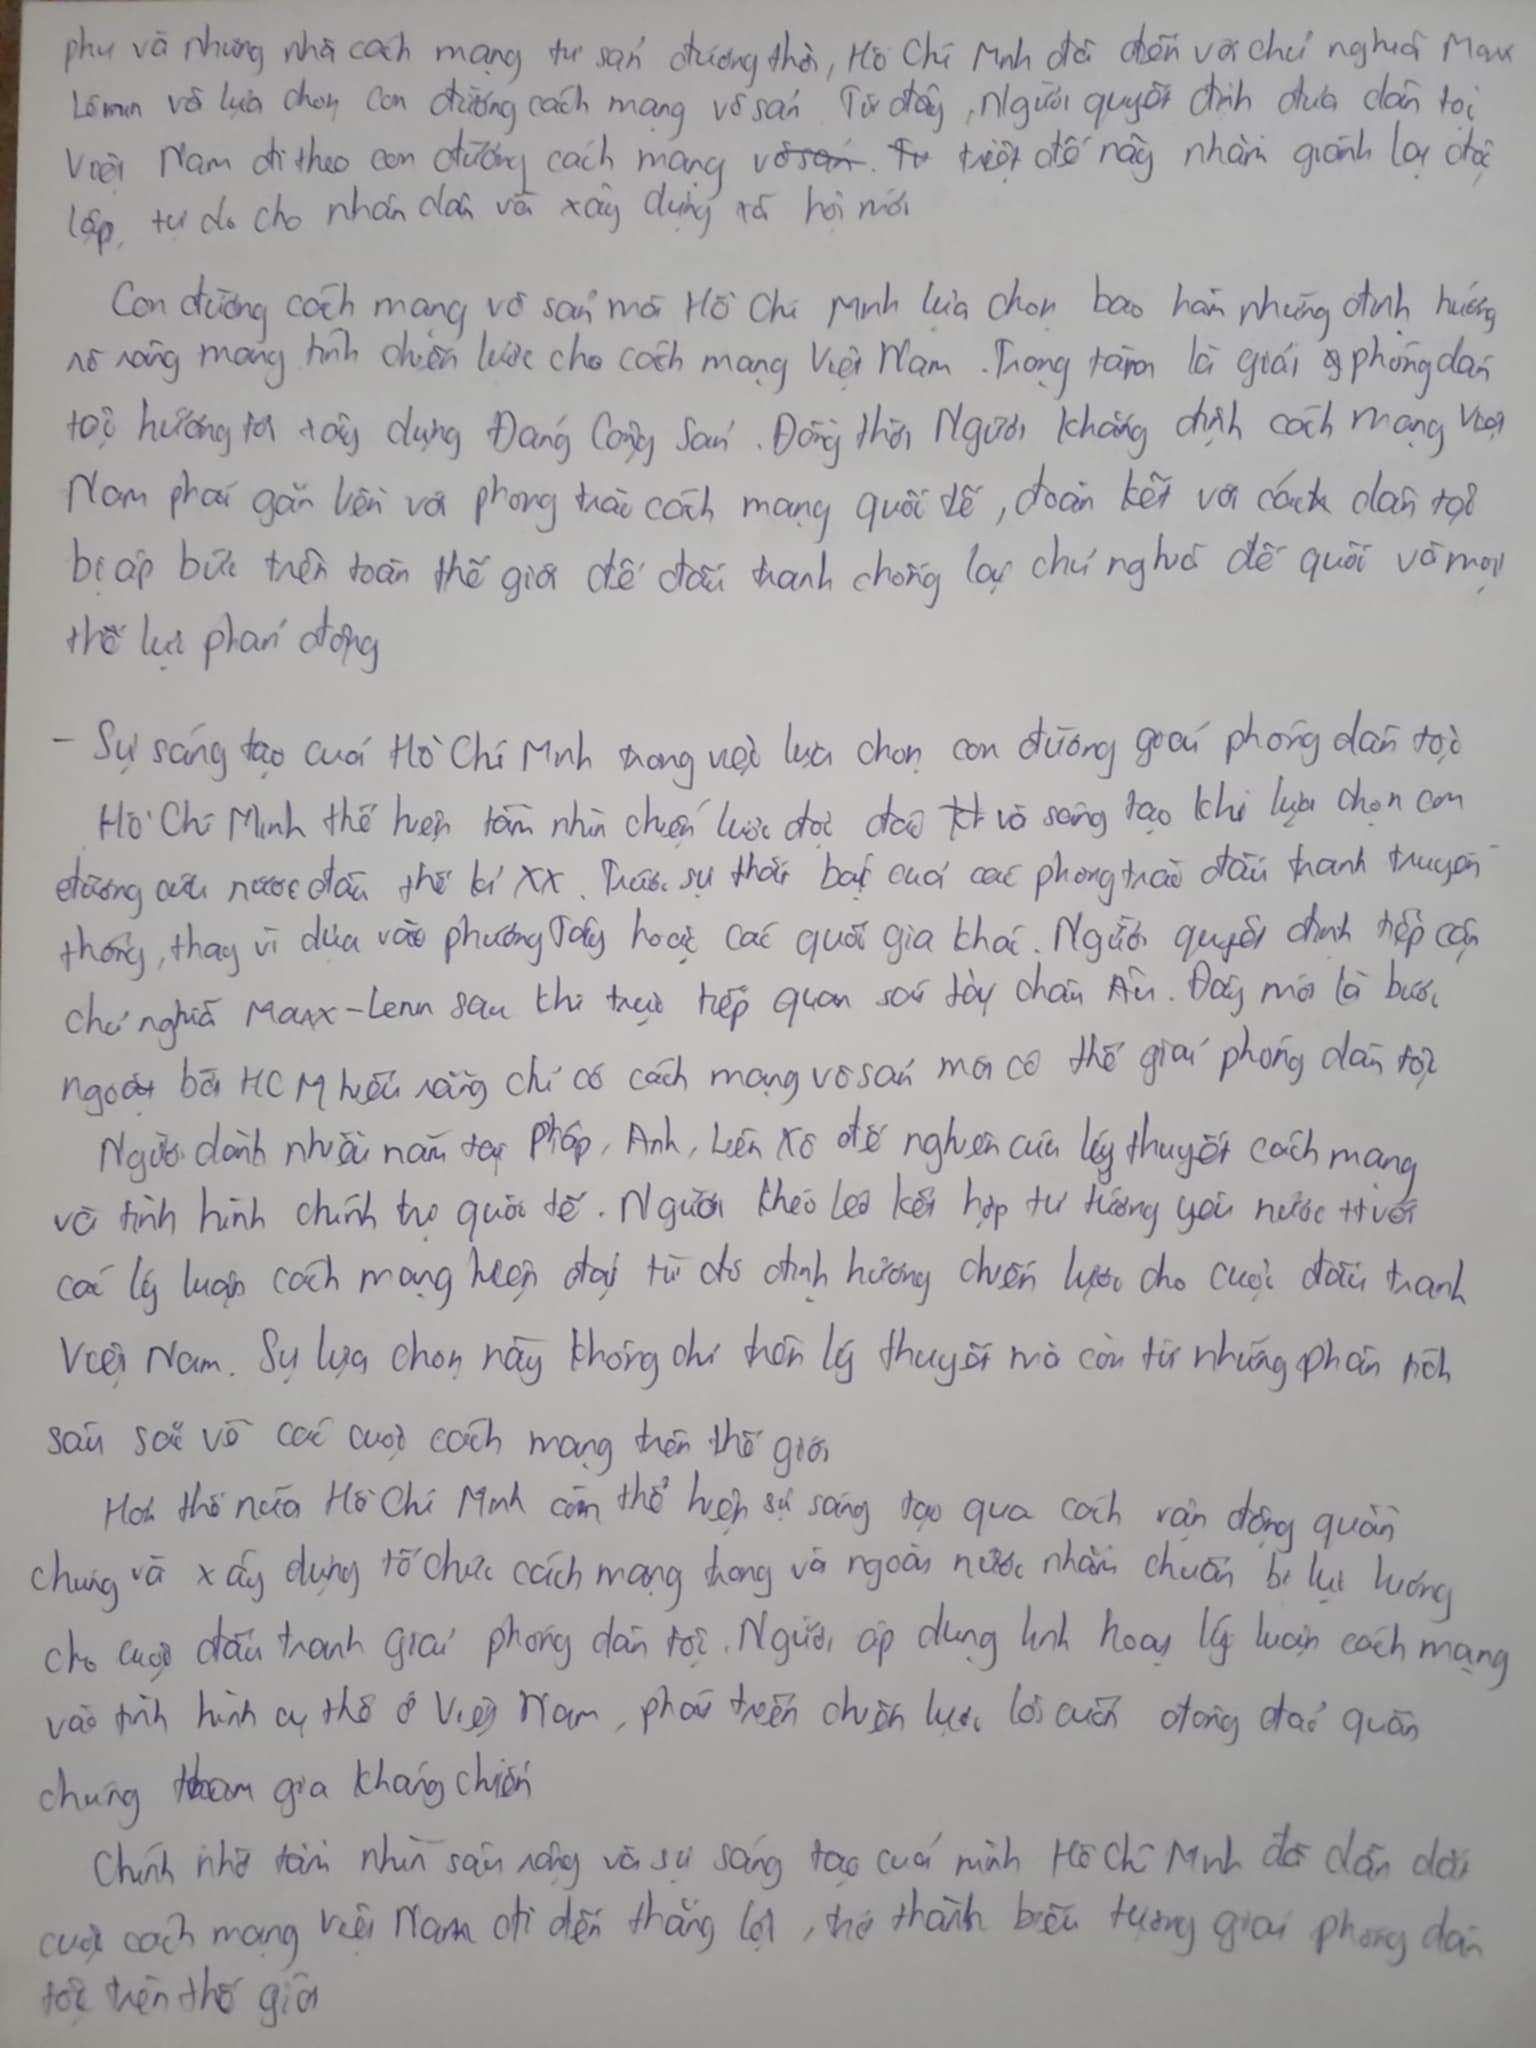 phụ và những nhà cách mạng tư sản đương thời, Hồ Chí Minh đã đến với chủ nghĩa Marx
Lênin và lựa chọn con đường cách mạng vô sản. Từ đây, Người quyết định đưa dân tộc
Việt Nam đi theo con đường cách mạng vô sản. Từ triệt để này nhằm giành lại độc
lập, tự do cho nhân dân và xây dựng xã hội mới
Con đường cách mạng vô sản mà Hồ Chí Minh lựa chọn bao hàm những định hướng
rõ ràng mang tính chiến lược cho cách mạng Việt Nam. Trọng tâm là giải phóng dân
tộc hướng tới xây dựng Đảng Cộng Sản. Đồng thời Người khẳng định cách mạng Việt
Nam phải gắn liền với phong trào cách mạng quốc tế, đoàn kết với các dân tộc
bị áp bức trên toàn thế giới để đấu tranh chống lại chủ nghĩa đế quốc và mọi
thế lực phản động
- Sự sáng tạo của Hồ Chí Minh trong việc lựa chọn con đường giải phóng dân tộc
Hồ Chí Minh thể hiện tầm nhìn chiến lược độc đáo và sáng tạo khi lựa chọn con
đường cứu nước đầu thế kỉ XX. Trước sự thất bại của các phong trào đấu tranh truyền
thống, thay vì dựa vào phương Tây hoặc các quốc gia khác. Người quyết định tiếp cận
chủ nghĩa Marx-Lenin sau khi trực tiếp quan sát tại châu Âu. Đây mới là bước
ngoặt bởi HCM hiểu rằng chỉ có cách mạng vô sản mới có thể giải phóng dân tộc
Người dành nhiều năm tại Pháp, Anh, Liên Xô để nghiên cứu lý thuyết cách mạng
và tình hình chính trị quốc tế. Người khéo léo kết hợp tư tưởng yêu nước với
các lý luận cách mạng hiện đại từ đó định hướng chiến lược cho cuộc đấu tranh
Việt Nam. Sự lựa chọn này không chỉ trên lý thuyết mà còn từ những phân tích
sâu sắc về các cuộc cách mạng trên thế giới
Hơn thế nữa Hồ Chí Minh còn thể hiện sự sáng tạo qua cách vận động quần
chúng và xây dựng tổ chức cách mạng trong và ngoài nước nhằm chuẩn bị lực lượng
cho cuộc đấu tranh giải phóng dân tộc. Người áp dụng linh hoạt lý luận cách mạng
vào tình hình cụ thể ở Việt Nam, phát triển chiến lược lôi cuốn đông đảo quần
chúng tham gia kháng chiến
Chính nhờ tầm nhìn sâu rộng và sự sáng tạo của mình Hồ Chí Minh đã dẫn dắt
cuộc cách mạng Việt Nam đi đến thắng lợi, trở thành biểu tượng giải phóng dân
tộc trên thế giới